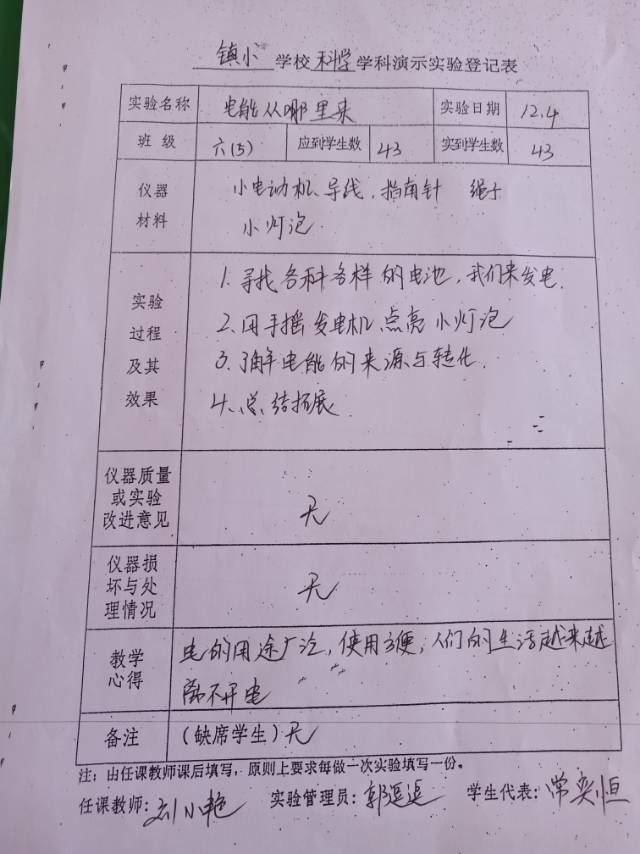 镇小学校科学学科演示实验登记表
实验名称 电能从哪里来 实验日期 12.4
班级 六(5) 应到学生数 43 实到学生数 43
仪器材料 小电动机、导线、指南针 绳子
小灯泡
实验过程及其效果
1.寻找各科各样的电池,我们来发电.
2.用手摇发电机、点亮小灯泡
3.了解电能的来源与转化.
4、总结拓展
仪器质量或实验改进意见 无
仪器损坏与处理情况 无
教学心得 电的用途广泛,使用方便,人们的生活越来越
离不开电
备注 (缺席学生)无
注:由任课教师课后填写,原则上要求每做一次实验填写一份。
任课教师:刘小艳 实验管理员:郭 学生代表:常奕恒